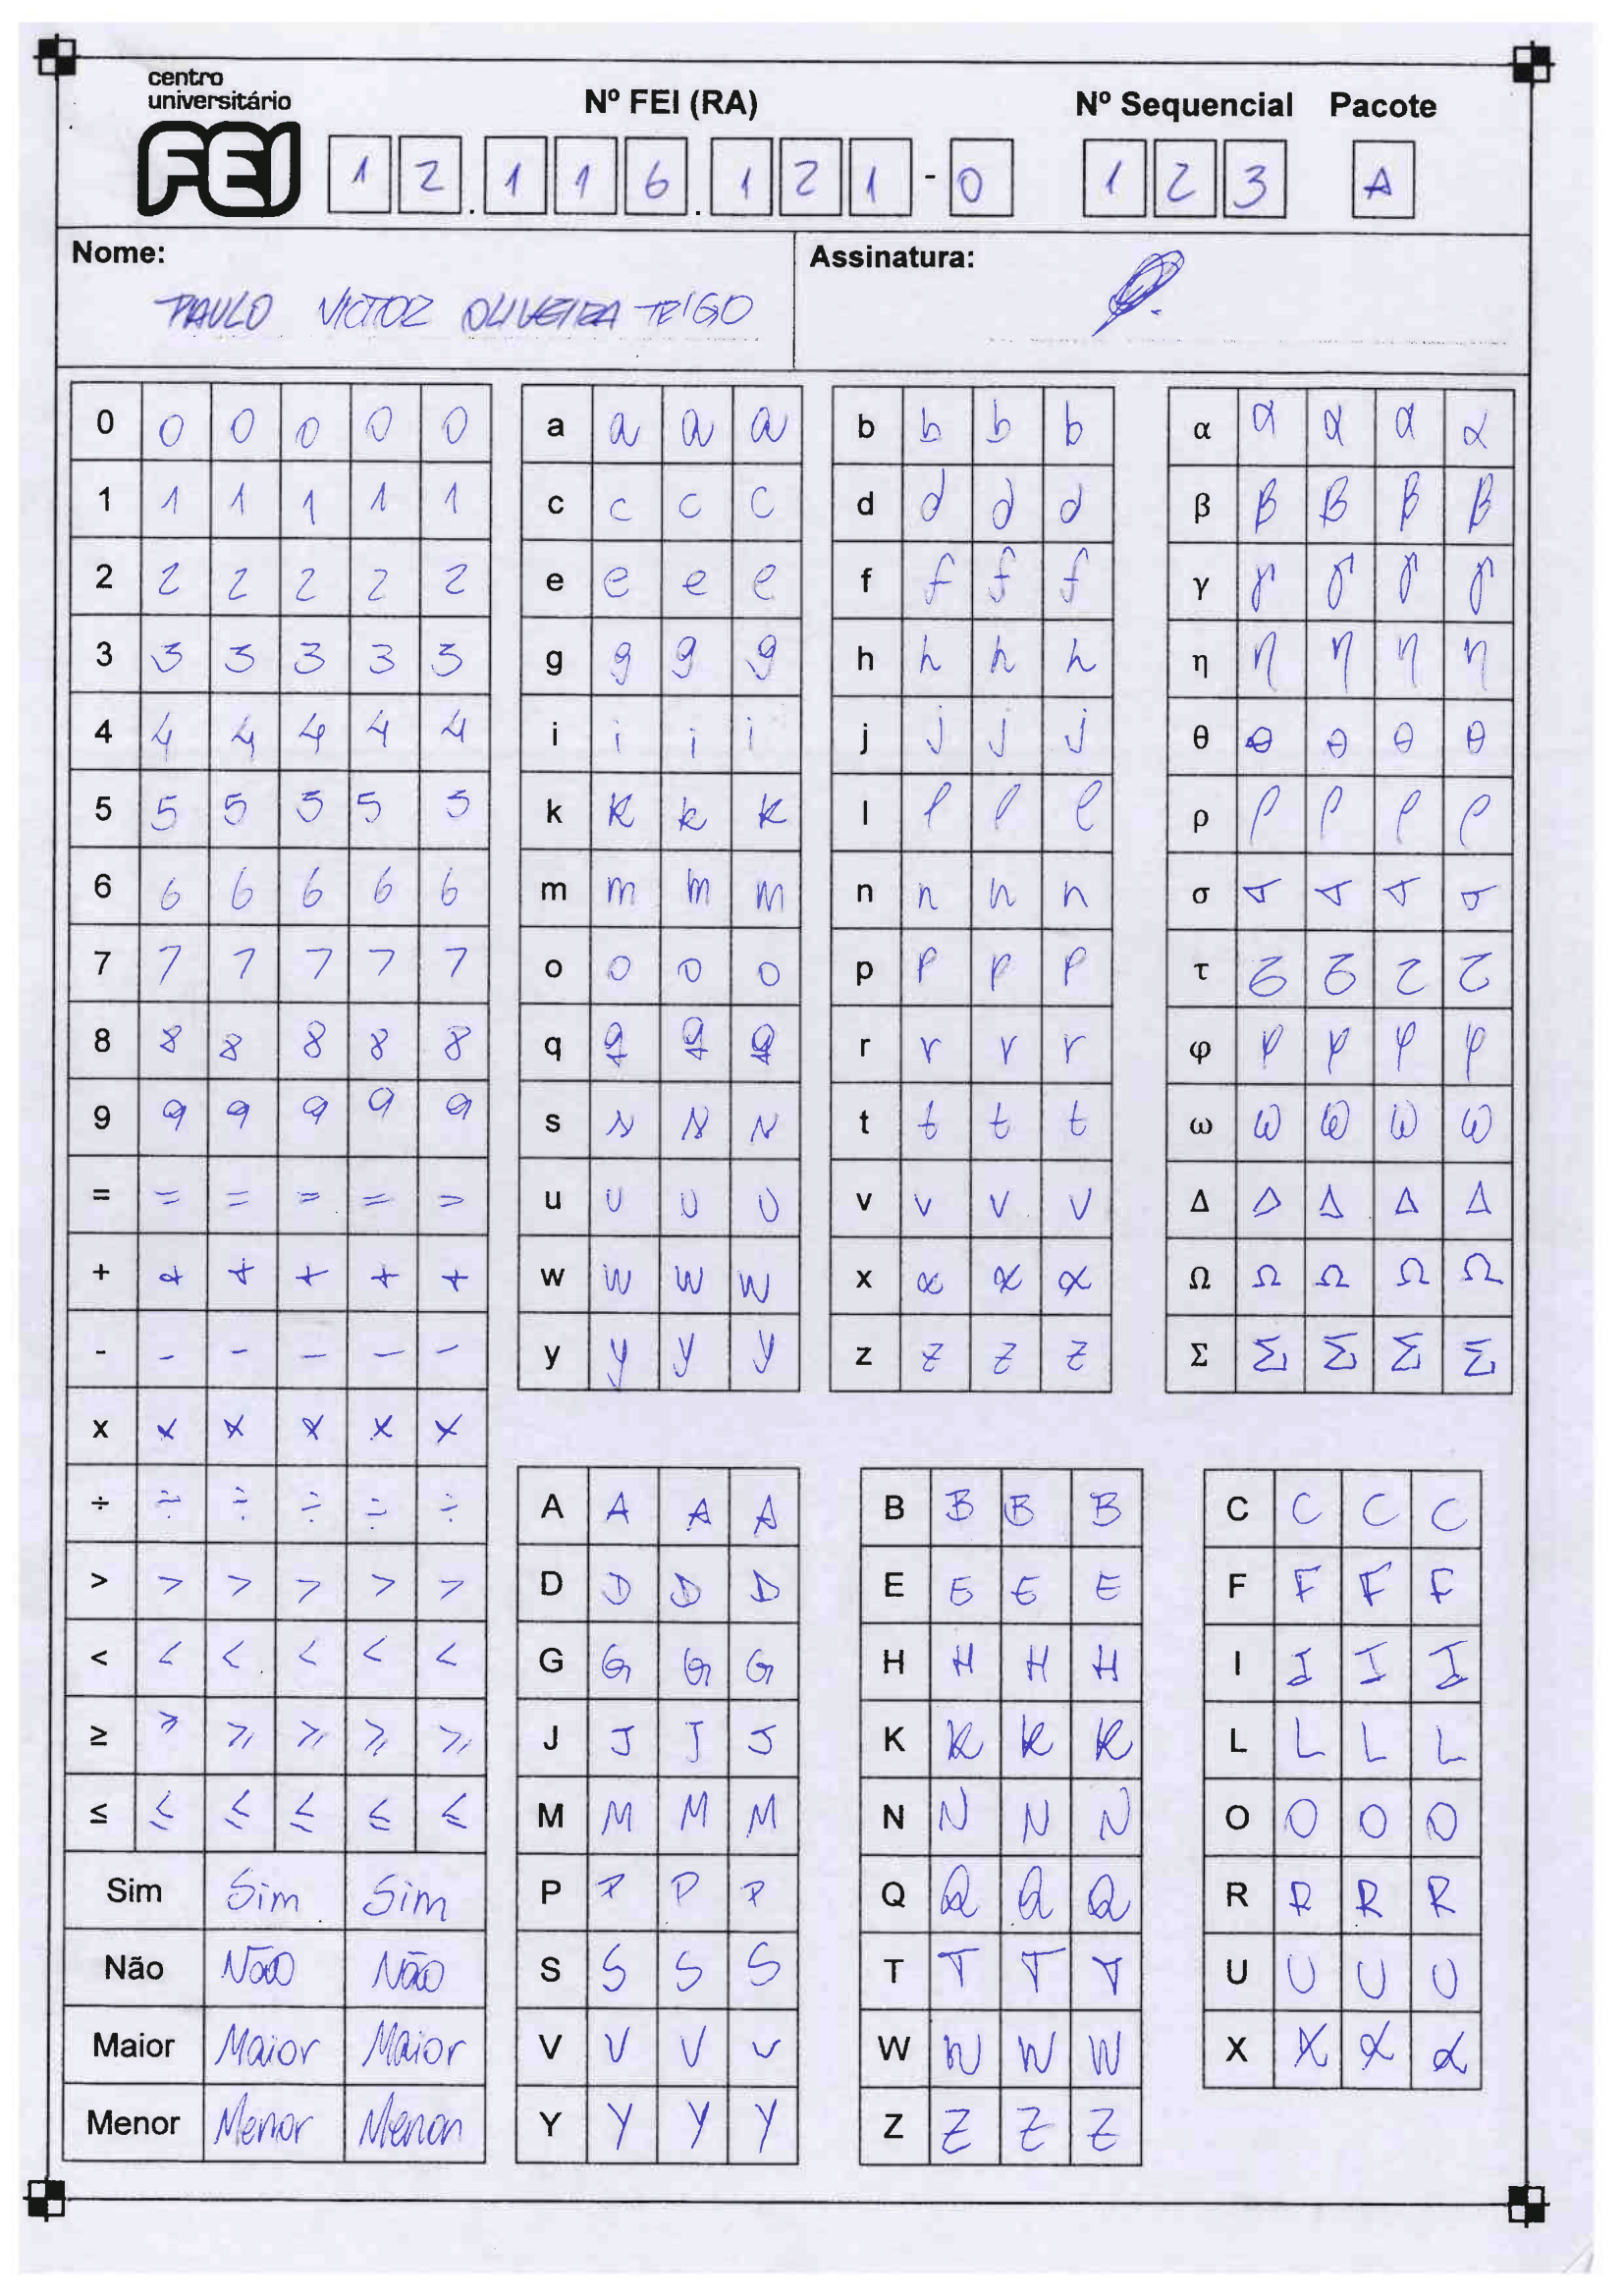 centro
universitário
FEI
Nº FEI (RA)
12.116.121-0
Nº Sequencial
123
Pacote
A
Nome:
PAULO VICTOR OLIVEIRA TRIGO
Assinatura:
0 0 0 0 0 0
1 1 1 1 1 1
2 2 2 2 2 2
3 3 3 3 3 3
4 4 4 4 4 4
5 5 5 5 5 5
6 6 6 6 6 6
7 7 7 7 7 7
8 8 8 8 8 8
9 9 9 9 9 9
= = = = = =
+ + + + + +
- - - - - -
x x x x x x
÷ ÷ ÷ ÷ ÷ ÷
> > > > > >
< < < < < <
≥ ≥ ≥ ≥ ≥ ≥
≤ ≤ ≤ ≤ ≤ ≤
Sim Sim Sim
Não Não Não
Maior Maior Maior
Menor Menor Menor
a a a a
c c c c
e e e e
g g g g
i i i i
k k k k
m m m m
o o o o
q q q q
s s s s
u u u u
w w w w
y y y y
b b b b
d d d d
f f f f
h h h h
j j j j
l l l l
n n n n
p p p p
r r r r
t t t t
v v v v
x x x x
z z z z
α α α α α
β β β β β
γ γ γ γ γ
η η η η η
θ θ θ θ θ
ρ ρ ρ ρ ρ
σ σ σ σ σ
τ τ τ τ τ
φ φ φ φ φ
ω ω ω ω ω
Δ Δ Δ Δ Δ
Ω Ω Ω Ω Ω
Σ Σ Σ Σ Σ
A A A A
D D D D
G G G G
J J J J
M M M M
P P P P
S S S S
V V V V
Y Y Y Y
B B B B
E E E E
H H H H
K K K K
N N N N
Q Q Q Q
T T T T
W W W W
Z Z Z Z
C C C C
F F F F
I I I I
L L L L
O O O O
R R R R
U U U U
X X X X